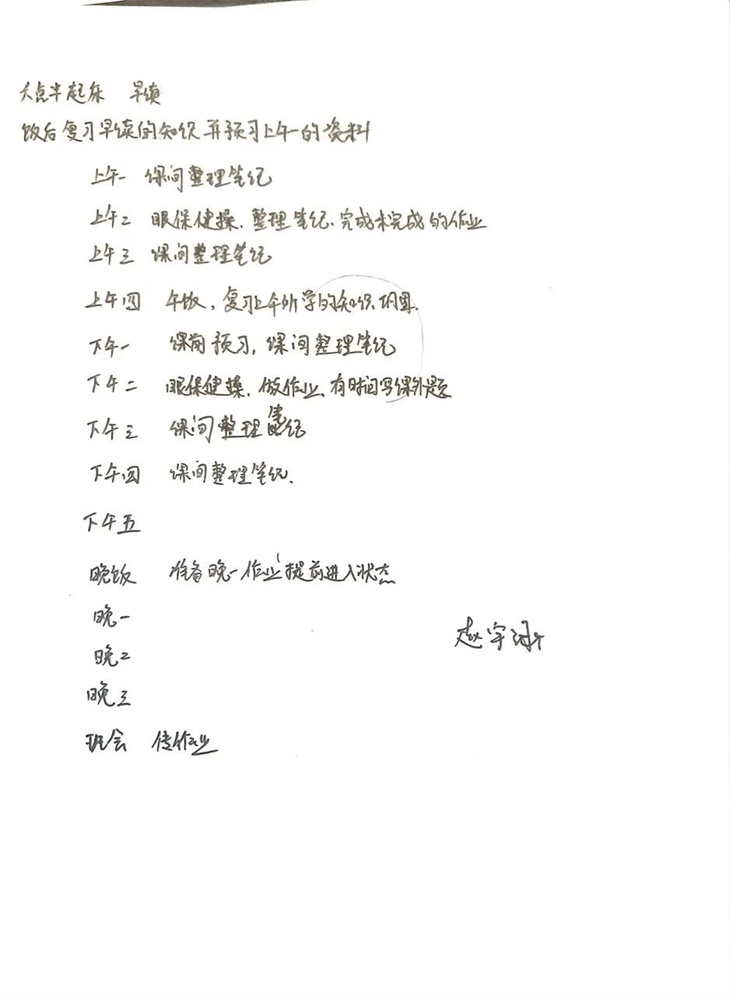 六点半起床 早读
饭后复习早读的知识并预习上午一的资料
上午一 课间整理笔记
上午二 眼保健操、整理笔记、完成未完成的作业
上午三 课间整理笔记
上午四 午饭，复习上午所学的知识、巩固.
下午一 课前预习，课间整理笔记
下午二 眼保健操、做作业、有时间写课外题
下午三 课间整理笔记
下午四 课间整理笔记.
下午五
晚饭 准备晚一作业提前进入状态
晚一
晚二
赵宇
晚三
班会 传作业